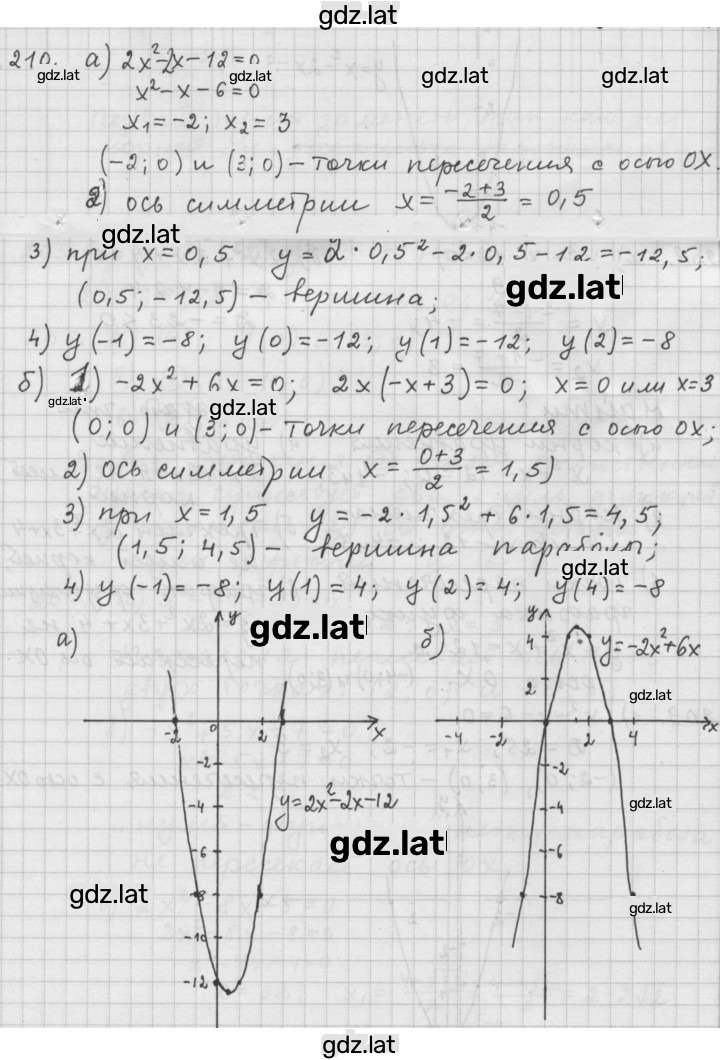 gdz.lat
210. а) 2x²-2x-12=0
gdz.lat gdz.lat gdz.lat gdz.lat
x²-x-6=0
x₁=-2; x₂=3
(-2;0) и (3;0)-точки пересечения с осью OX.
2) ось симметрии x=(-2+3)/2=0,5
gdz.lat
3) при x=0,5 y=2·0,5²-2·0,5-12=-12,5;
gdz.lat
(0,5;-12,5)-вершина;
4) y(-1)=-8; y(0)=-12; y(1)=-12; y(2)=-8
б) 1) -2x²+6x=0; 2x(-x+3)=0; x=0 или x=3
gdz.lat gdz.lat
(0;0) и (3;0)-точки пересечения с осью OX;
2) ось симметрии x=(0+3)/2=1,5)
3) при x=1,5 y=-2·1,5²+6·1,5=4,5;
(1,5; 4,5)- вершина параболы;
gdz.lat
4) y(-1)=-8; y(1)=4; y(2)=4; y(4)=-8
gdz.lat
а) y
-2 0 2 x
-2
-4
y=2x²-2x-12
-6
-8
-10
-12
б) y
4 y=-2x²+6x
2
gdz.lat
-4 -2 4 x
-2
-4
gdz.lat
gdz.lat
-6
gdz.lat
-8
gdz.lat
gdz.lat